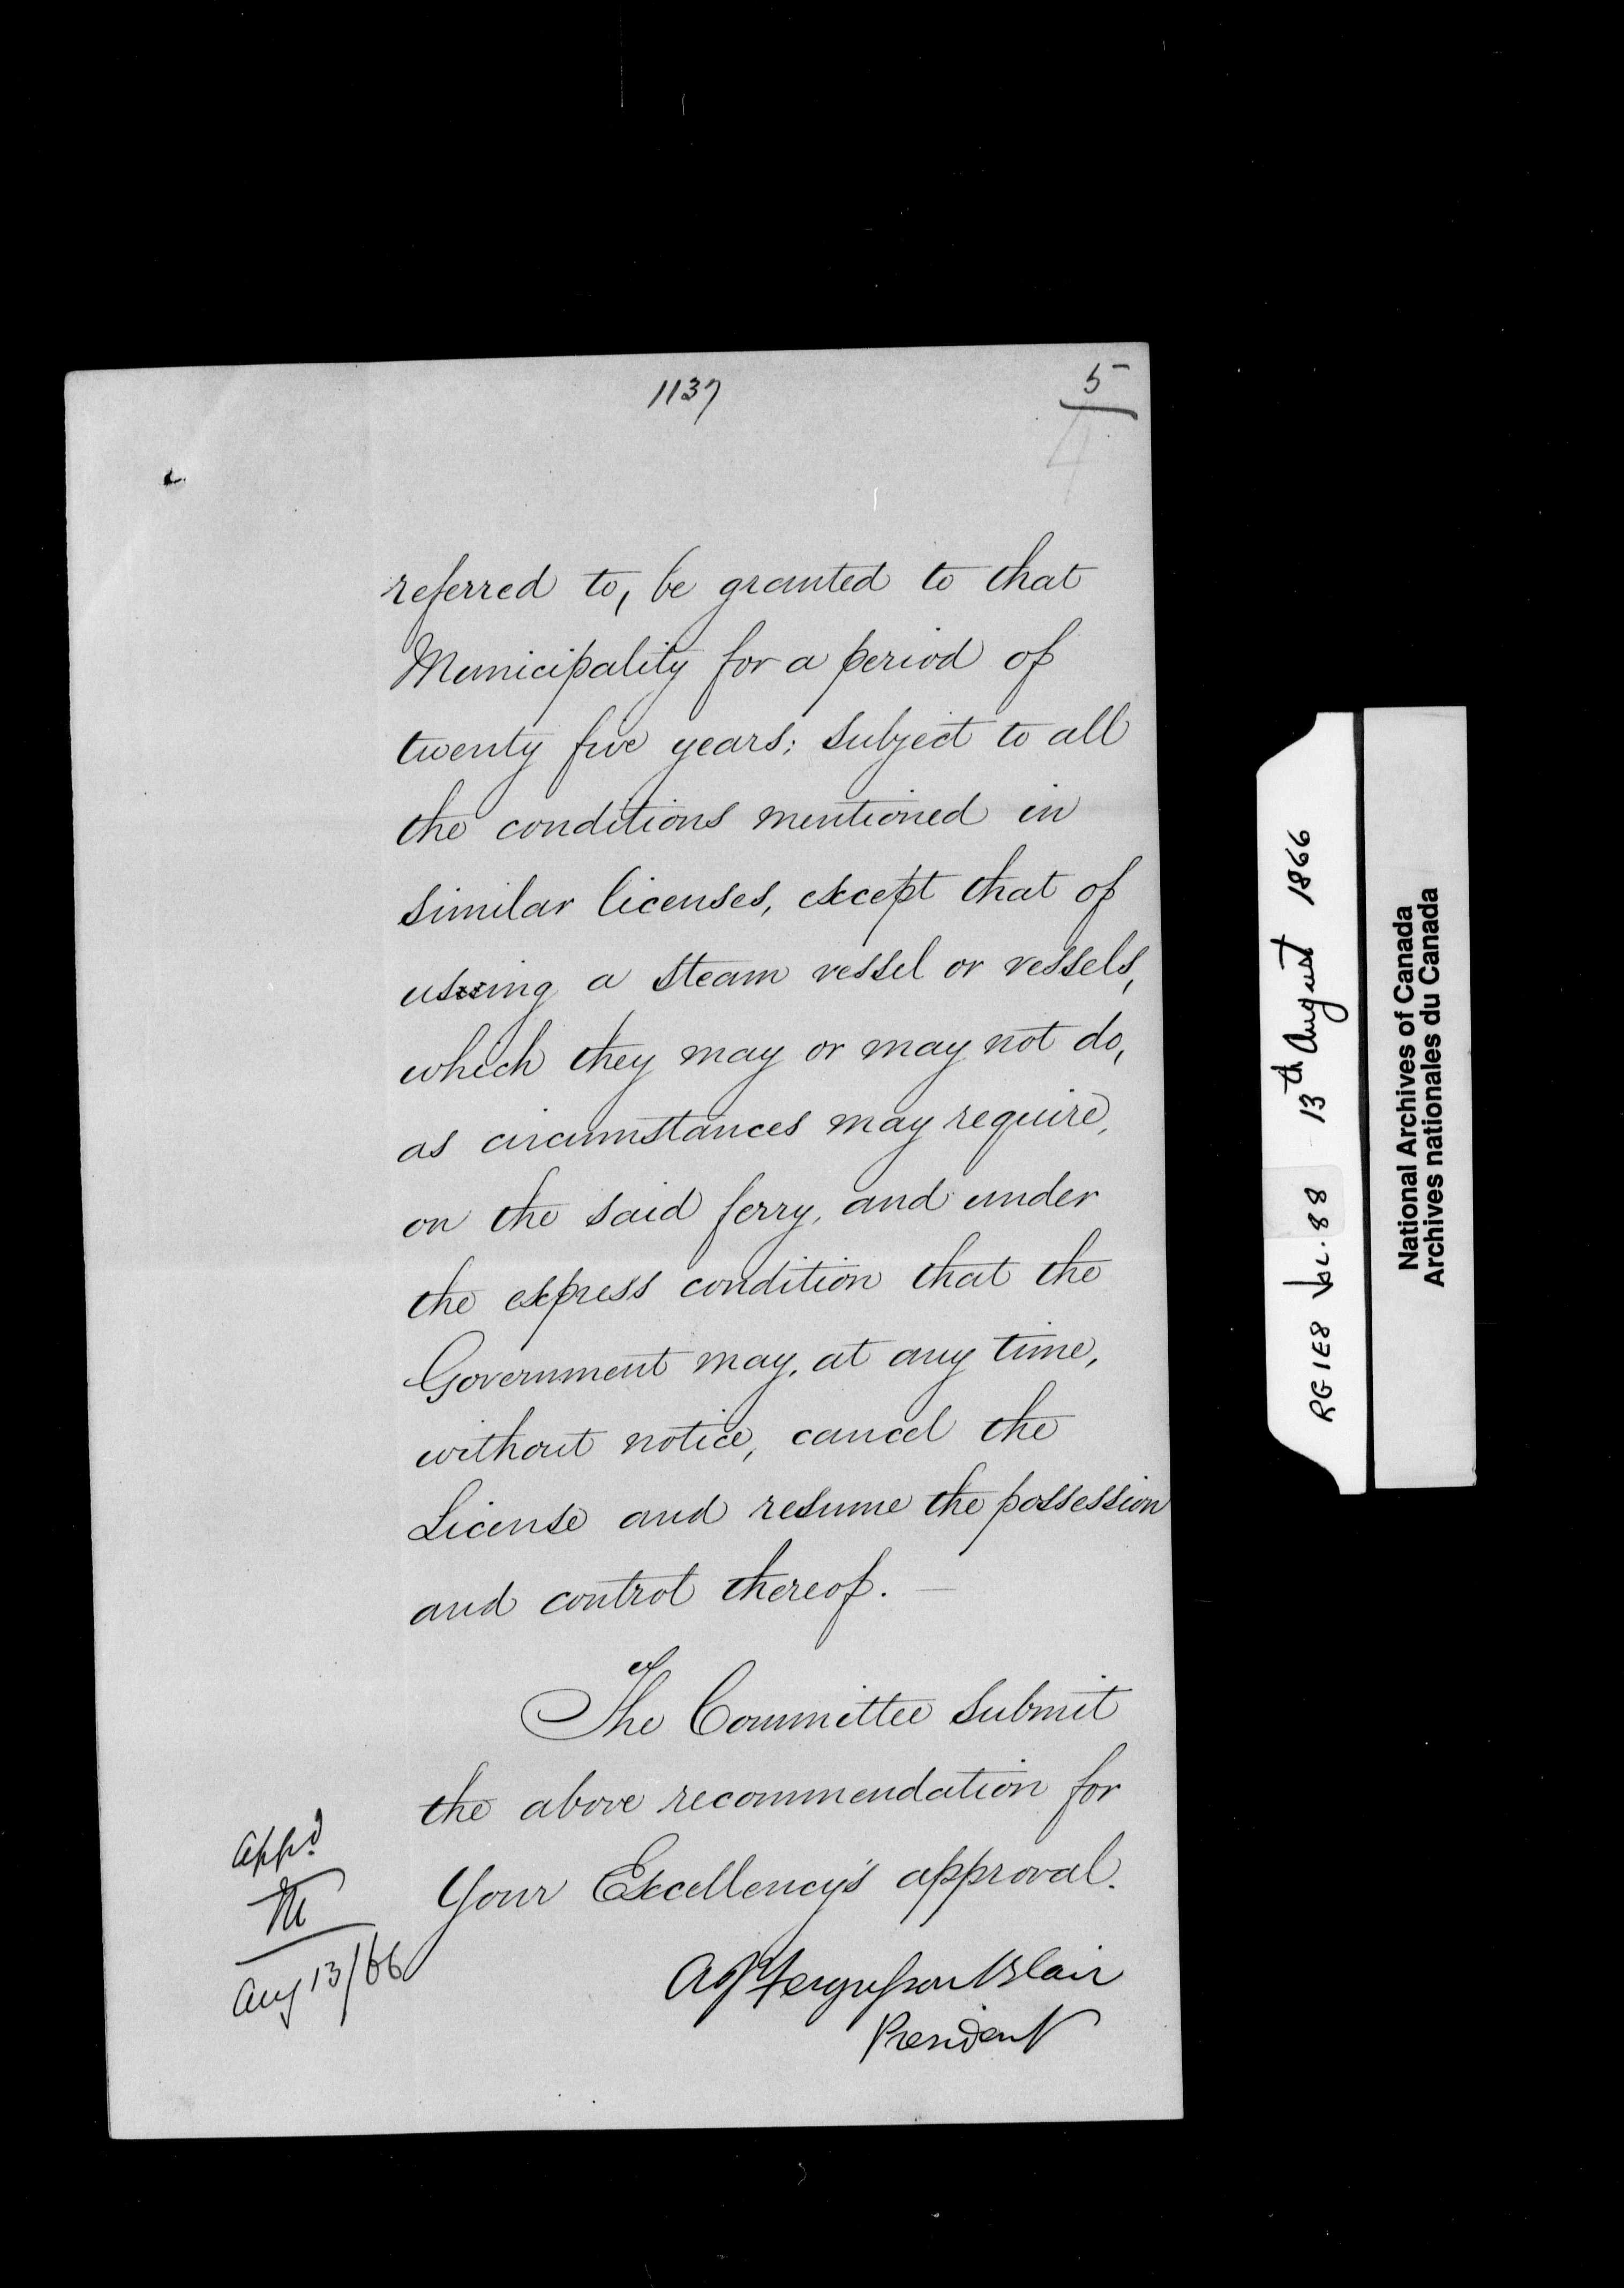 1137
5
4
referred to, be granted to that
Municipality for a period of
twenty five years; subject to all
the conditions mentioned in
similar licenses, except that of
using a steam vessel or vessels,
which they may or may not do,
as circumstances may require,
on the said ferry, and under
the express condition that the
Government may, at any time,
without notice, cancel the
License and resume the possession
and control thereof. —
The Committee submit
the above recommendation for
Your Excellency's approval.
Appd
Aug 13/66
A J Fergusson Blair
President
RG 1E8 Vol. 88 13th August 1866
National Archives of Canada
Archives nationales du Canada